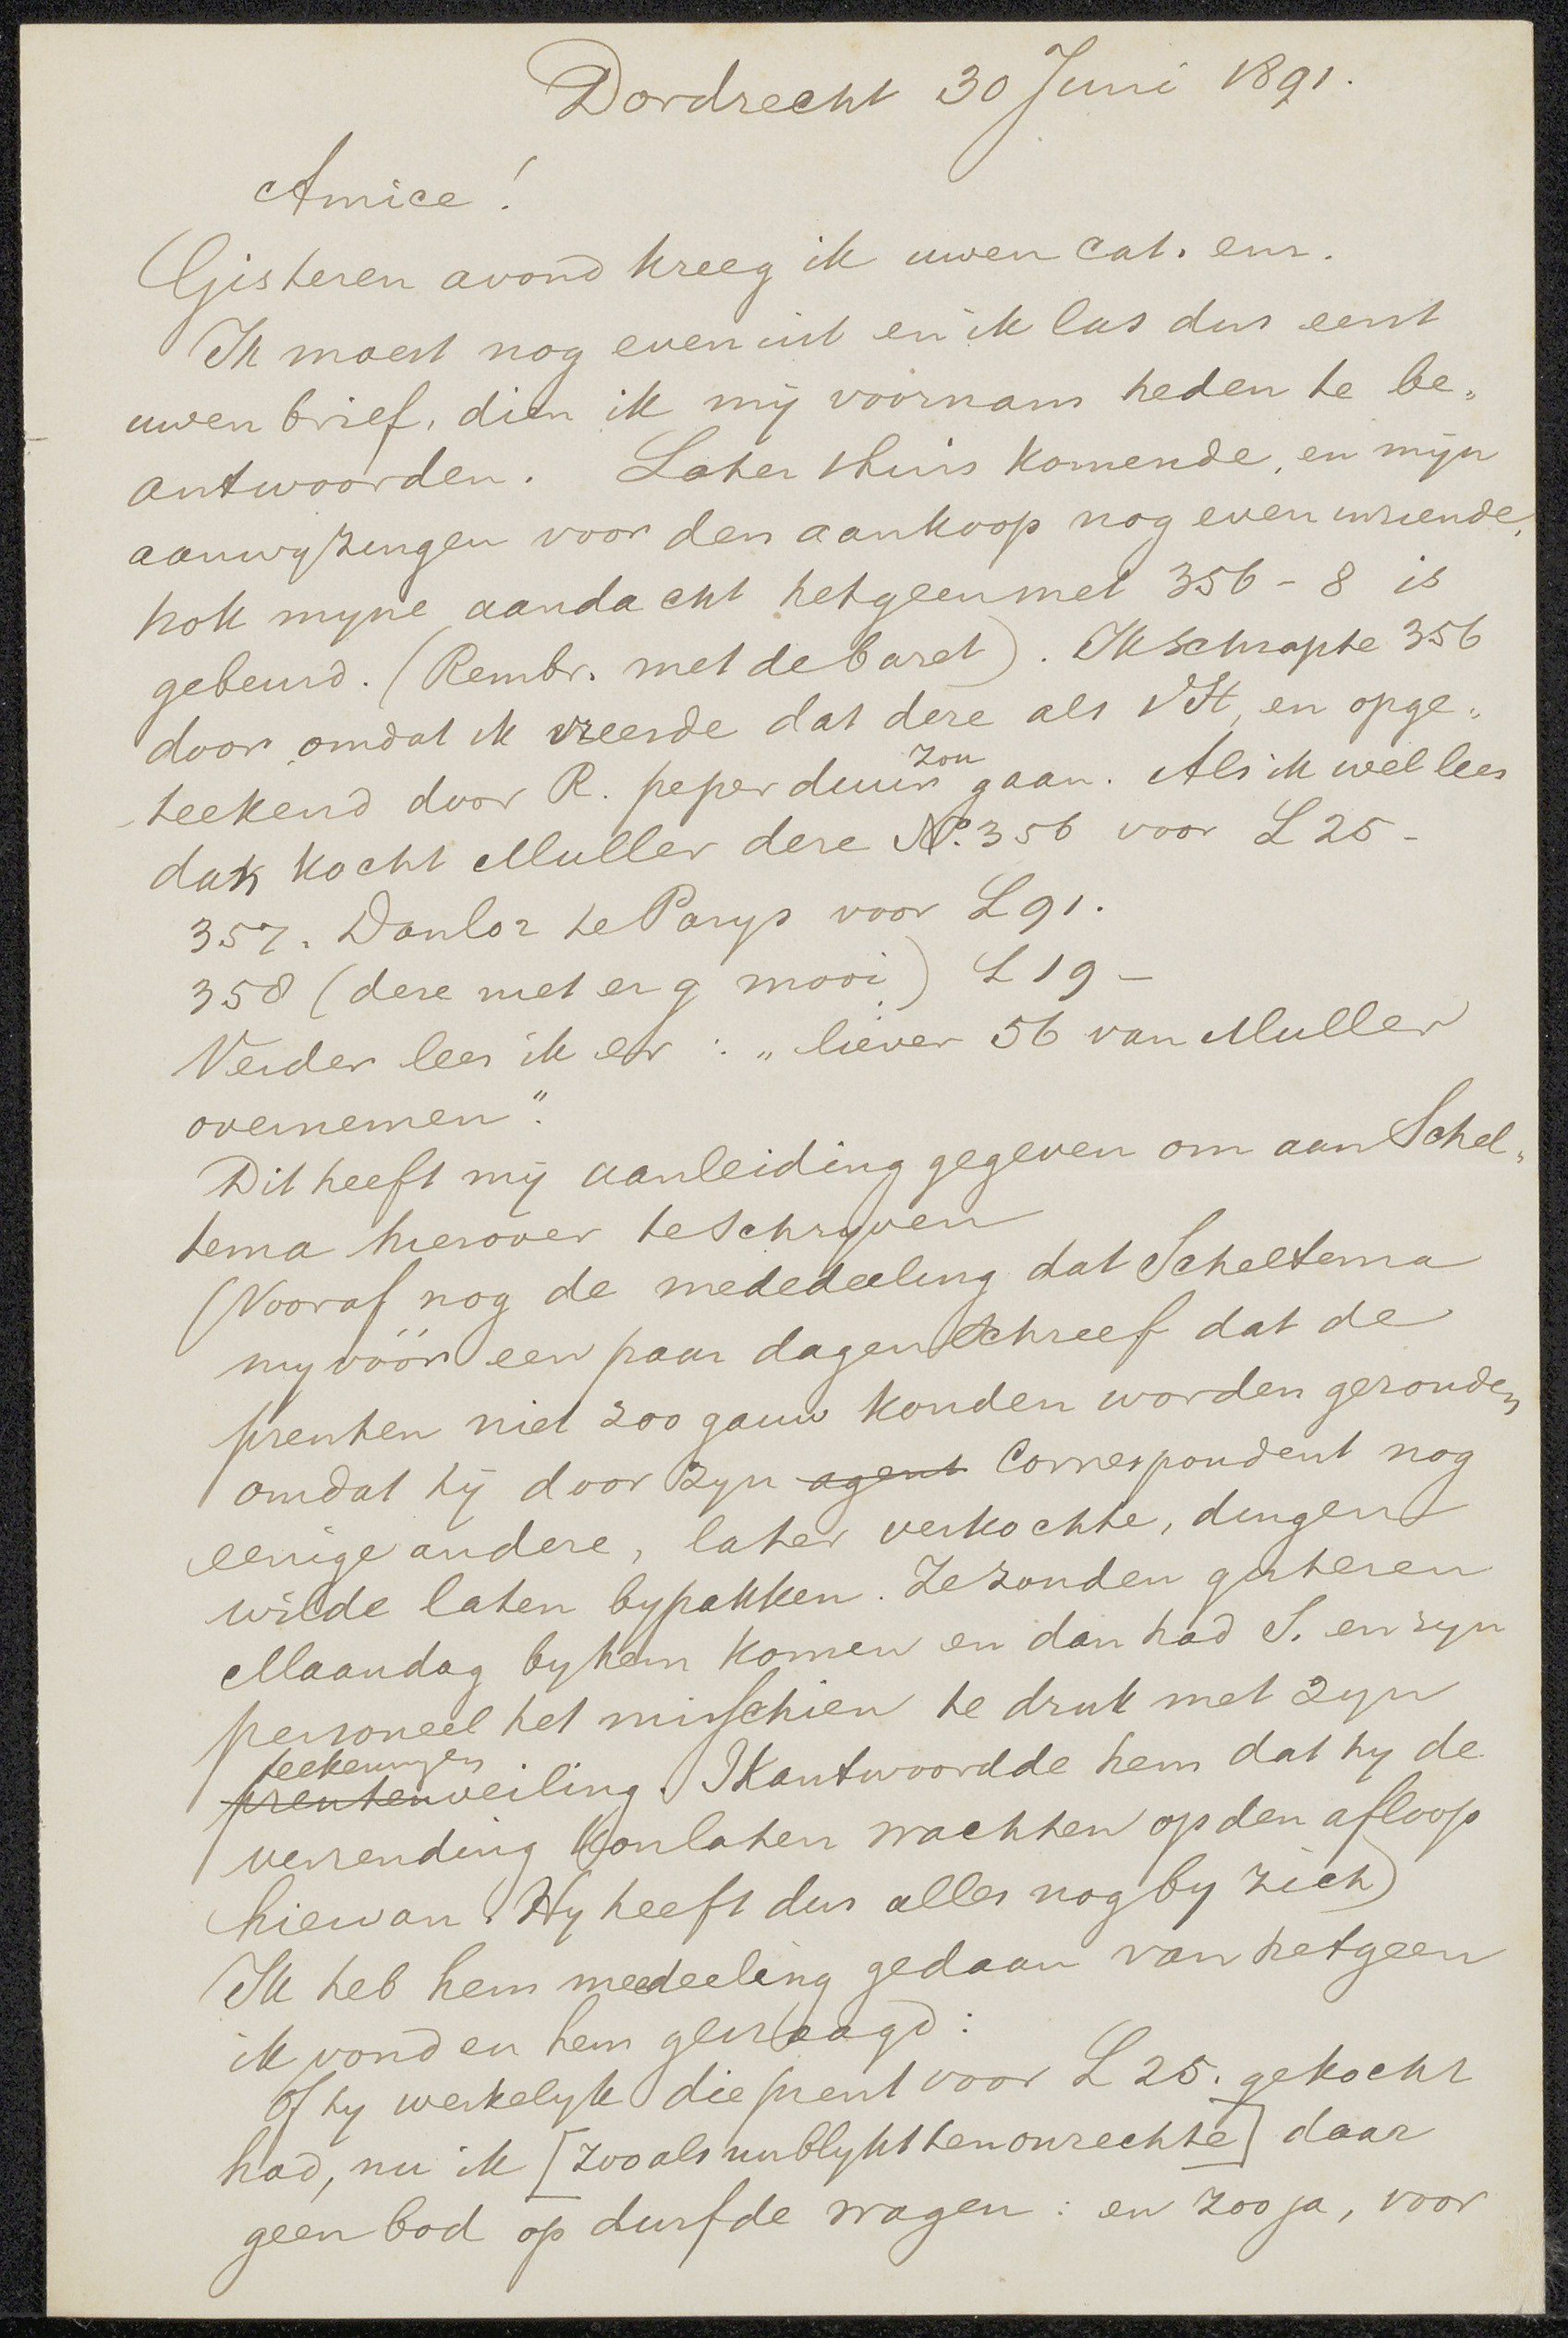 Dordrecht 30 Juni 1891.
Amice!
Gisteren avond kreeg ik uwen cat. enz.
Ik moest nog even uit en ik las dus eerst
uwen brief, dien ik mij voornam heden te be„
antwoorden. Later thuis komende, en mijn
aanwyzingen voor den aankoop nog even inziende,
trok myne aandacht hetgeen met 356 - 8 is
gebeurd. (Rembr. met de baret). Ik schrapte 356
door omdat ik vreesde dat deze als VSt, en opge„
teekend door R. peperduur zou gaan. Als ik wel lees
dan kocht Muller deze No. 356 voor £ 25 -
357. Danloz te Parys voor £ 91.
358 (deze niet erg mooi) £ 19 -
Verder lees ik er : „liever 56 van Muller
overnemen".
Dit heeft mij aanleiding gegeven om aan Schel„
tema hierover te schryven
(Vooraf nog de mededeeling dat Scheltema
my vóór een paar dagen schreef dat de
prenten niet zoo gauw konden worden gezonden
omdat hij door zyn agent Correspondent nog
eenige andere, later verkochte, dingen
wilde laten bypakken. Ze zouden gisteren
Maandag by hem komen en dan had S. en zyn
personeel het misschien te druk met zyn
prentenveiling teekeningen. Ik antwoordde hem dat hy de
verzending kon laten wachten op den afloop
hiervan. Hy heeft dus alles nog by zich)
Ik heb hem medeeling gedaan van hetgeen
ik vond en hem gevraagd:
Of hy werkelyk die prent voor £ 25. gekocht
had, nu ik [zooals nu blykt ten onrechte] daar
geen bod op durfde wagen : en zoo ja, voor